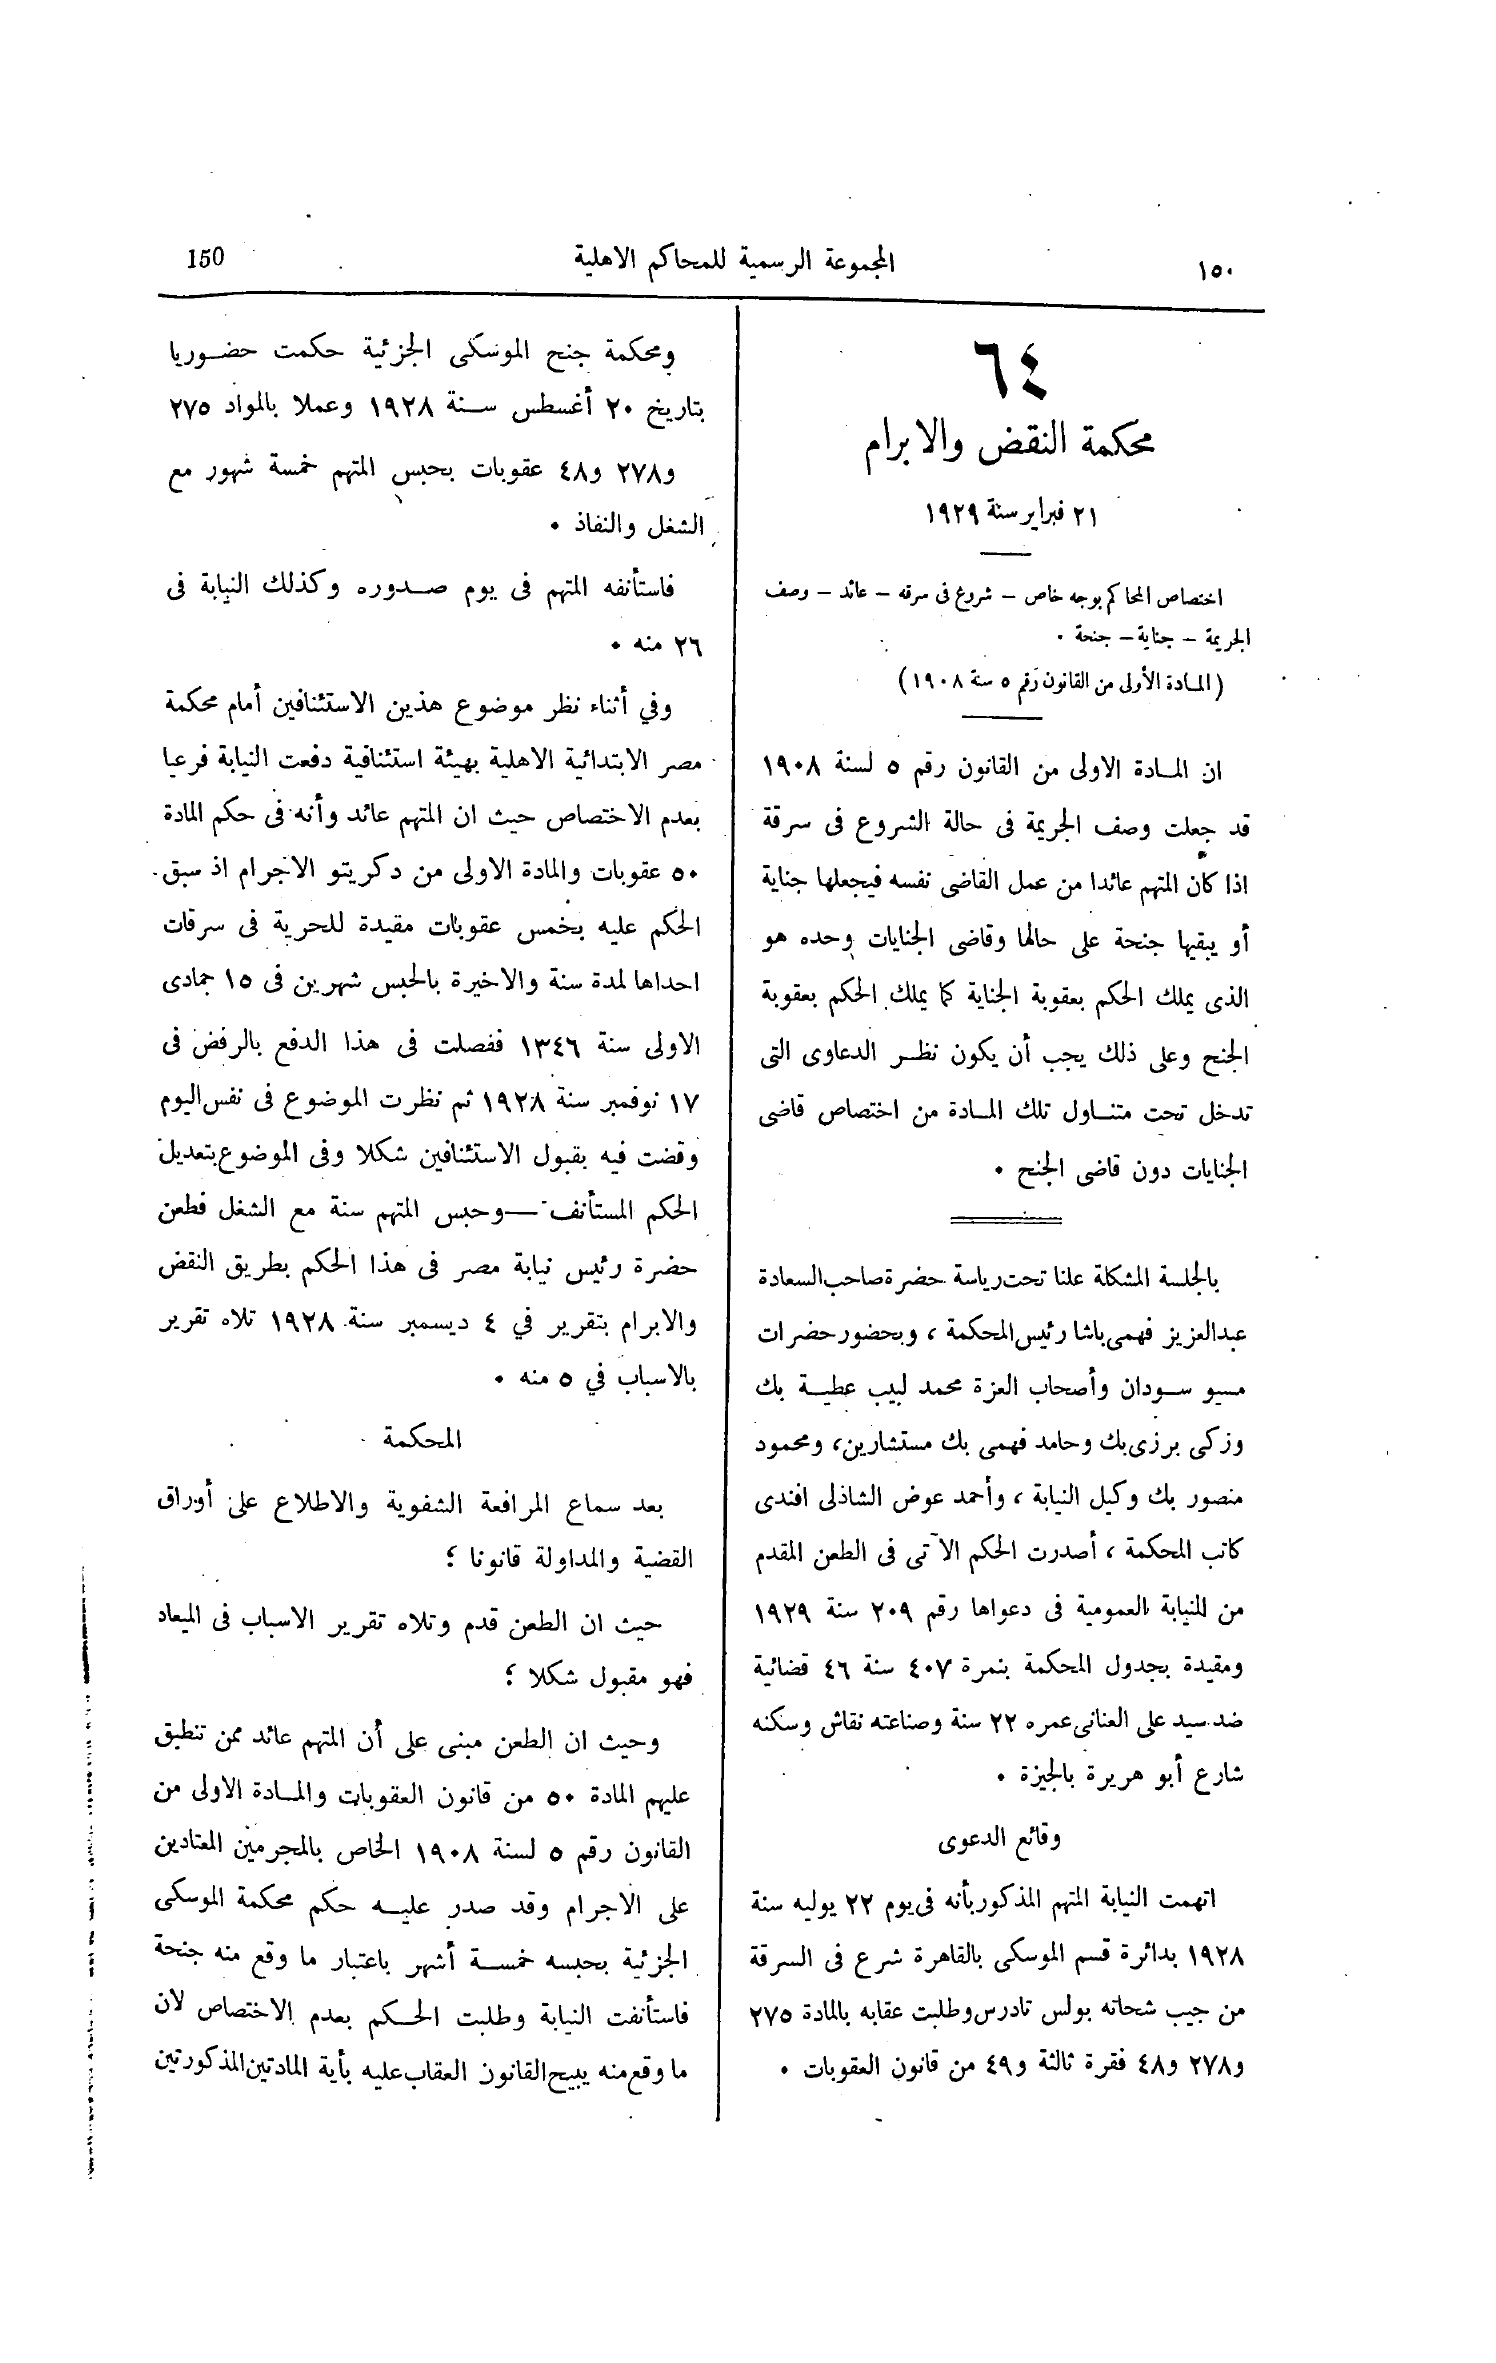 ١٥٠
المجموعة الرسمية للمحاكم الاهلية
150
٦٤
محكمة النقض والابرام
٢١ فبراير سنة ١٩٢٩
اختصاص المحاكم بوجه خاص – شروع فى سرقه – عائد – وصف
الجريمة – جناية – جنحة .
(المادة الأولى من القانون رقم ٥ سنة ١٩٠٨)
ان المادة الاولى من القانون رقم ٥ لسنة ١٩٠٨
قد جعلت وصف الجريمة فى حالة الشروع فى سرقة
اذا كان المتهم عائدا من عمل القاضى نفسه فيجعلها جناية
أو يبقيها جنحة على حالها وقاضى الجنايات وحده هو
الذى يملك الحكم بعقوبة الجناية كما يملك الحكم بعقوبة
الجنح وعلى ذلك يجب أن يكون نظر الدعاوى التى
تدخل تحت متناول تلك المادة من اختصاص قاضى
الجنايات دون قاضى الجنح .
بالجلسة المشكلة علنا تحت رياسة حضرة صاحب السعادة
عبدالعزيز فهمى باشا رئيس المحكمة ، وبحضور حضرات
مسيو سودان وأصحاب العزة محمد لبيب عطية بك
وزكى برزى بك وحامد فهمى بك مستشارين، ومحمود
منصور بك وكيل النيابة ، وأحمد عوض الشاذلى افندى
كاتب المحكمة ، أصدرت الحكم الآتى فى الطعن المقدم
من النيابة العمومية فى دعواها رقم ٢٠٩ سنة ١٩٢٩
ومقيدة بجدول المحكمة بنمرة ٤٠٧ سنة ٤٦ قضائية
ضد سيد على العنانى عمره ٢٢ سنة وصناعته نقاش وسكنه
شارع أبو هريرة بالجيزة .
وقائع الدعوى
اتهمت النيابة المتهم المذكور بأنه فى يوم ٢٢ يوليه سنة
١٩٢٨ بدائرة قسم الموسكى بالقاهرة شرع فى السرقة
من جيب شحاته بولس تادرس وطلبت عقابه بالمادة ٢٧٥
و٢٧٨ و٤٨ فقرة ثالثة و٤٩ من قانون العقوبات .
ومحكمة جنح الموسكى الجزئية حكمت حضوريا
بتاريخ ٢٠ أغسطس سنة ١٩٢٨ وعملا بالمواد ٢٧٥
و٢٧٨ و٤٨ عقوبات بحبس المتهم خمسة شهور مع
الشغل والنفاذ .
فاستأنفه المتهم فى يوم صدوره وكذلك النيابة فى
٢٦ منه .
وفي أثناء نظر موضوع هذين الاستئنافين أمام محكمة
مصر الابتدائية الاهلية بهيئة استئنافية دفعت النيابة فرعيا
بعدم الاختصاص حيث ان المتهم عائد وأنه فى حكم المادة
٥٠ عقوبات والمادة الاولى من دكريتو الاجرام اذ سبق
الحكم عليه بخمس عقوبات مقيدة للحرية فى سرقات
احداها لمدة سنة والاخيرة بالحبس شهرين فى ١٥ جمادى
الاولى سنة ١٣٤٦ ففصلت فى هذا الدفع بالرفض فى
١٧ نوفمبر سنة ١٩٢٨ ثم نظرت الموضوع فى نفس اليوم
وقضت فيه بقبول الاستئنافين شكلا وفى الموضوع بتعديل
الحكم المستأنف — وحبس المتهم سنة مع الشغل فطعن
حضرة رئيس نيابة مصر فى هذا الحكم بطريق النقض
والابرام بتقرير في ٤ ديسمبر سنة ١٩٢٨ تلاه تقرير
بالاسباب في ٥ منه .
المحكمة
بعد سماع المرافعة الشفوية والاطلاع على أوراق
القضية والمداولة قانونا ؛
حيث ان الطعن قدم وتلاه تقرير الاسباب فى الميعاد
فهو مقبول شكلا ؛
وحيث ان الطعن مبنى على أن المتهم عائد ممن تنطبق
عليهم المادة ٥٠ من قانون العقوبات والمادة الاولى من
القانون رقم ٥ لسنة ١٩٠٨ الخاص بالمجرمين المعتادين
على الاجرام وقد صدر عليه حكم محكمة الموسكى
الجزئية بحبسه خمسة أشهر باعتبار ما وقع منه جنحة
فاستأنفت النيابة وطلبت الحكم بعدم الاختصاص لان
ما وقع منه يبيح القانون العقاب عليه بأية المادتين المذكورتين